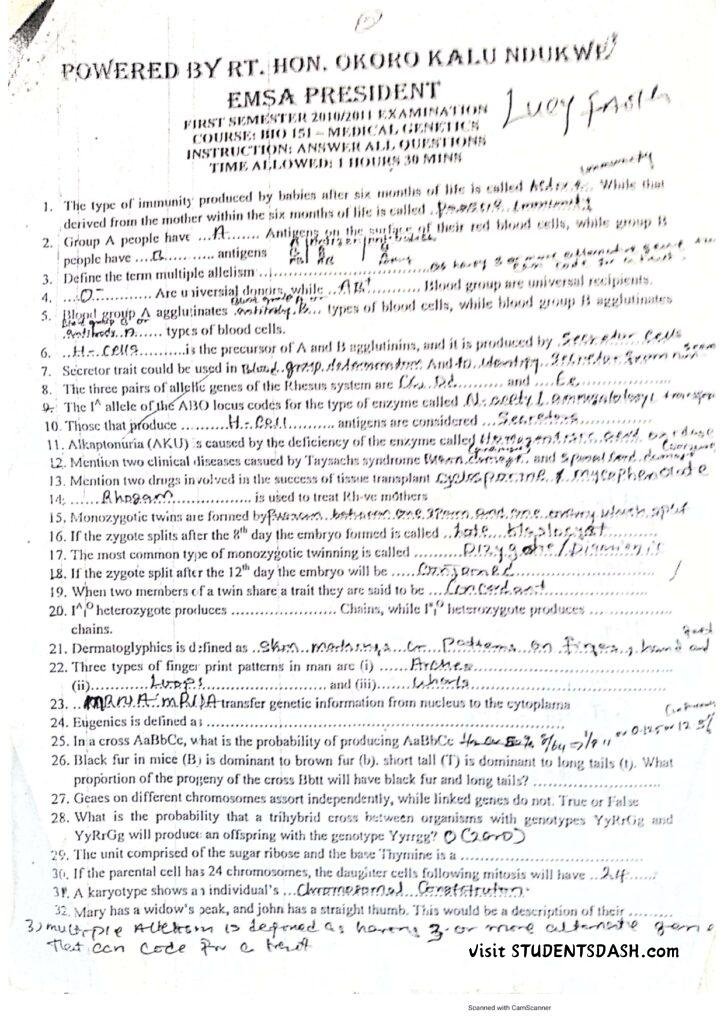 POWERED BY RT. HON. OKORO KALU NDUKWE
EMSA PRESIDENT
FIRST SEMESTER 2010/2011 EXAMINATION
COURSE: BIO 151 – MEDICAL GENETICS
INSTRUCTION: ANSWER ALL QUESTIONS
TIME ALLOWED: 1 HOURS 30 MINS
immunity
1. The type of immunity produced by babies after six months of life is called Active While that
derived from the mother within the six months of life is called Passive immunity
2. Group A people have ...A... Antigens on the surface of their red blood cells, while group B
people have ...B... antigens
3. Define the term multiple allelism
4. ...O-... Are universial donors, while ...AB+... Blood group are universal recipients.
5. Blood group A agglutinates antibody B... types of blood cells, while blood group B agglutinates
antibody A... types of blood cells.
6. ...H-cells...is the precursor of A and B agglutinins, and it is produced by Secretor cells
7. Secretor trait could be used in Blood group determination And to identify Secretor from non
8. The three pairs of allelic genes of the Rhesus system are Cc, Dd and Ee
9. The I^A allele of the ABO locus codes for the type of enzyme called
10. Those that produce ...H-cell... antigens are considered ...Secretors...
11. Alkaptonuria (AKU) is caused by the deficiency of the enzyme called Homogentisic acid oxidase
12. Mention two clinical diseases casued by Taysachs syndrome Brain damage and Spinal cord damage
13. Mention two drugs involved in the success of tissue transplant cyclosporine & mycophenolate
14. ...Rhogam... is used to treat Rh-ve mothers
15. Monozygotic twins are formed by fusion between one sperm and one which split
16. If the zygote splits after the 8th day the embryo formed is called ...Late blastocyst
17. The most common type of monozygotic twinning is called ...Dizygotic/
18. If the zygote split after the 12th day the embryo will be ...Conjoined
19. When two members of a twin share a trait they are said to be ...Concordant
20. I^A I^O heterozygote produces ........ Chains, while I^B I^O heterozygote produces ........
chains.
21. Dermatoglyphics is defined as ..Skin markings or Patterns on fingers, hand and
22. Three types of finger print patterns in man are (i) ...Arches...
(ii)...Loops... and (iii)...Whorls...
23. ...mRNA transfer genetic information from nucleus to the cytoplama
24. Eugenics is defined as ........
25. In a cross AaBbCc, what is the probability of producing AaBbCc 8/64 => 1/8 or 0.125 or 12.5%
26. Black fur in mice (B) is dominant to brown fur (b). short tall (T) is dominant to long tails (t). What
proportion of the progeny of the cross Bbtt will have black fur and long tails? ........
27. Genes on different chromosomes assort independently, while linked genes do not. True or False
28. What is the probability that a trihybrid cross between organisms with genotypes YyRrGg and
YyRrGg will produce an offspring with the genotype Yyrrgg? 0 (zero)
29. The unit comprised of the sugar ribose and the base Thymine is a ........
30. If the parental cell has 24 chromosomes, the daughter cells following mitosis will have ..24......
31. A karyotype shows an individual's ...Chromosomal Constitution.
32. Mary has a widow's peak, and john has a straight thumb. This would be a description of their ........
3) multiple Allelism is defined as having 3 or more alternate gene
that can code for a trait
visit STUDENTSDASH.com
Scanned with CamScanner